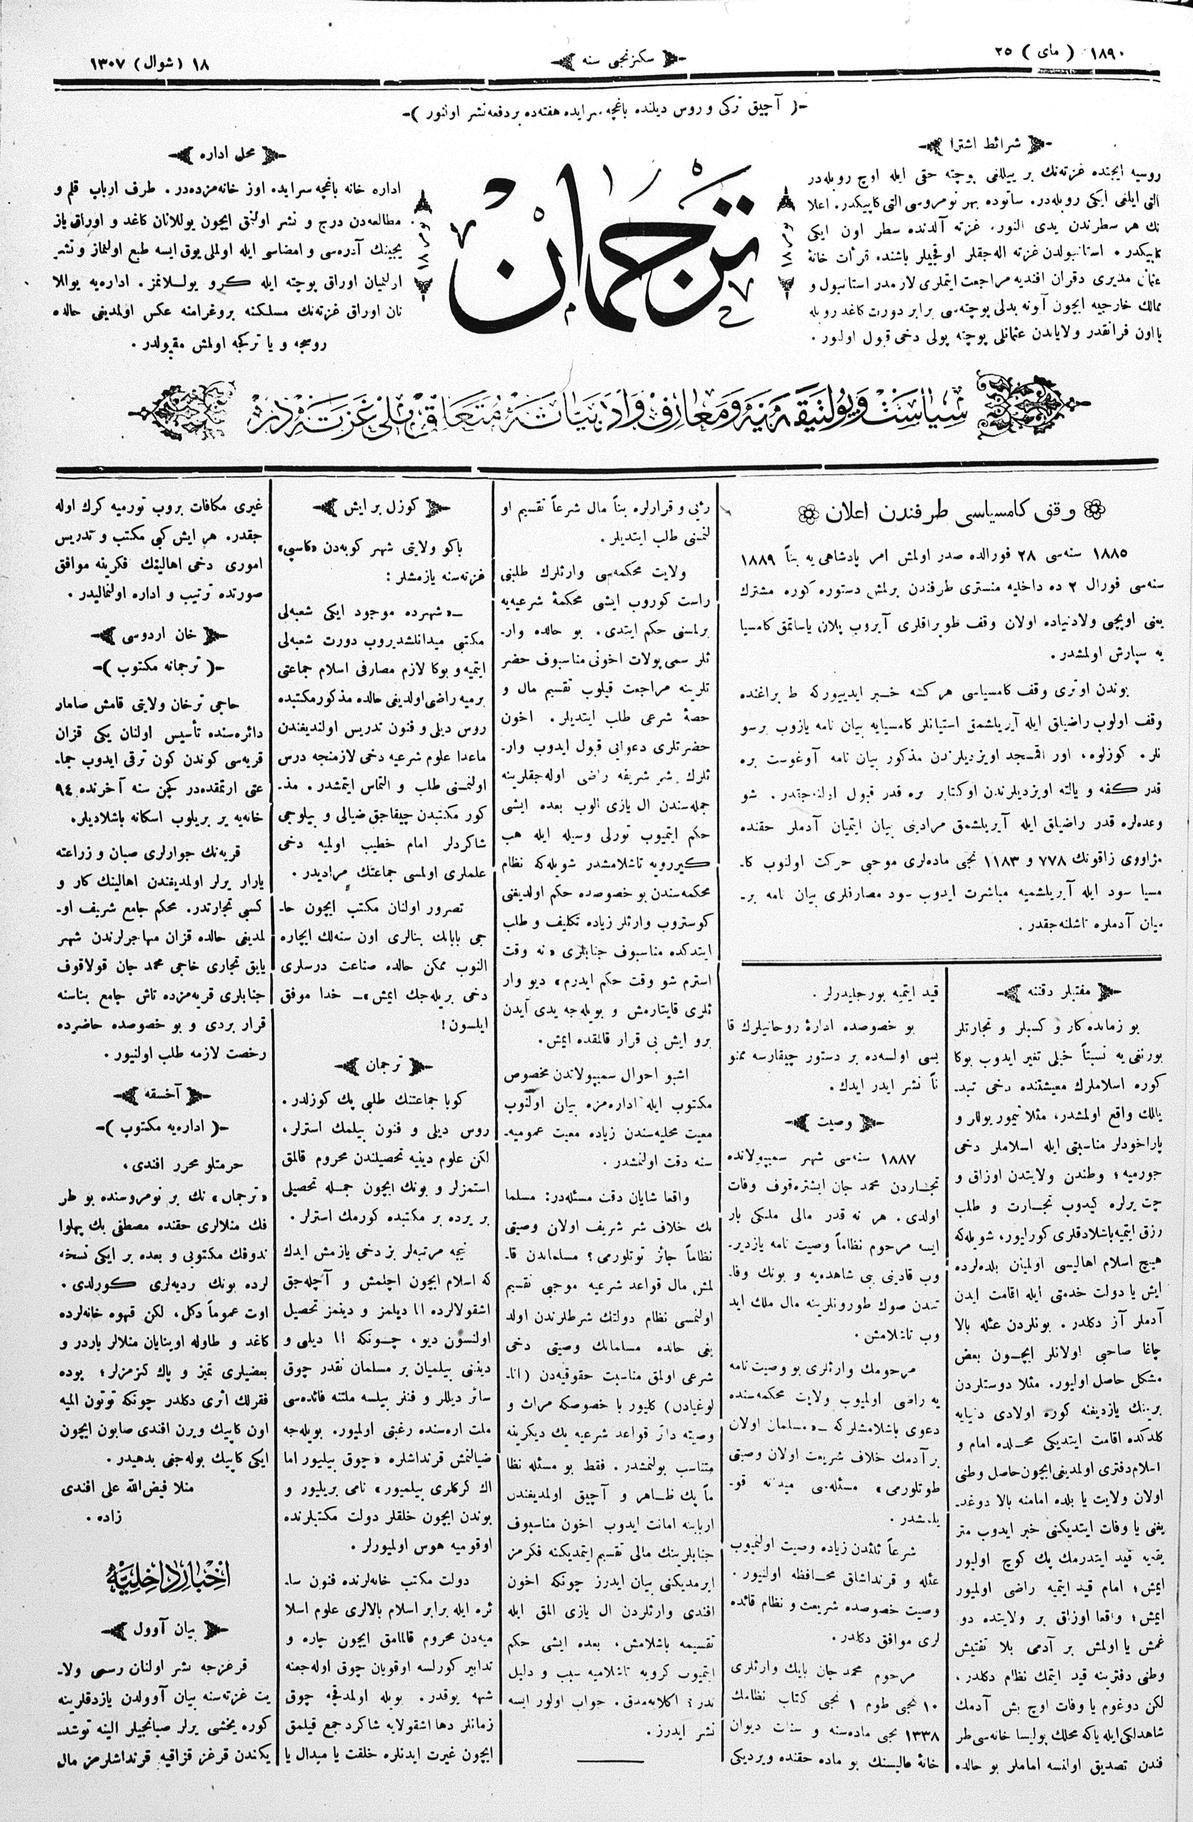 ١٨٩٠ (مای) ٢٥
سکزنجی سنه
١٨ (شوال) ١٣٠٧
-( آچیق ترکی و روس دیلنده باغچه‌سرایده هفته‌ده بر دفعه نشر اولنور )-
شرائط اشترا
روسیه ایچنده غزته‌نك بر ییللغی پوچته حقی ایله اوچ روبله‌در
التی ایلغی ایکی روبله‌در. ساتوده بهر نومروسی التی کاپیکدر. اعلا
نك هر سطرندن یدی النور. غزته آلدنده سطر اون ایکی
کاپیکدر.
ترجمان
نومر ١٨
نومر ١٨
محل اداره
اداره خانه باغچه سرایده اوز خانه‌مزده‌در. طرف ارباب قلم و
مطالعه‌دن درج و نشر اولنق ایچون یوللانان کاغد و اوراق یاز
یجینك آدره‌سی و امضاسی ایله اولملی یوق ایسه طبع اولنماز و نشر
ایتلمیان اوراق پوچته ایله کرو یوللانمز. اداره‌یه یوللا
نان اوراق غزته‌نك مسلکنه پروغرامنه عکس اولمدیغی حالده
روسجه و یا ترکجه اولمش مقبولدر.
سیاست و پولتیقه و معارف و ادبیاته متعلق ملی غزته‌در
وقف کامسیاسی طرفندن اعلان
١٨٨٥ سنه‌سی ٢٨ فورالده صدر اولمش امر پادشاهی یه بناً ١٨٨٩
سنه‌سی فورال ٢ ده داخلیه منستری طرفندن برلمش دستوره کوره مشترك
یعنی اویچی ولادنیاده اولان وقف طوبراقلری آیروب پلان یاساتمق کامسیا
یه سپارش اولمشدر.
بوندن اوتری وقف کامسیاسی هر کشه خبر ایدییورکه طبراغنده
وقف اولوب راضیلق ایله آیریلشمق استیانلر کامسیایه بیان نامه یازوب برسو
نلر.
قدر کفه و یالته اویزدیلرندن اوکتابر بره قدر قبول اولنه‌جقدر. شو
وعده‌لره قدر راضیلق ایله آیریلشمق مرادینی بیان ایتمیان آدملر حقنده
مژاووی زاقونك ٧٧٨ و ١١٨٣ نجی ماده‌لری موجبی حرکت اولنوب کا-
مسیا سود ایله آیریلشمیه مباشرت ایدوب سود مصارفلری بیان نامه بر-
میان آدملره تاشلنه‌جقدر.
مفتیلر دقتنه
بو زمانده کار و کسبلر و تجارتلر
بورنغی یه نسبتاً خیلی تغیر ایدوب بوکا
کوره اسلاملرك معیشتنده دخی تبد-
یللك واقع اولمشدر، مثلا تیمور یوللر و
پاراخودلر مناسبتی ایله اسلاملر دخی
جورمیه؛ وطندن ولایتدن اوزاق و
چت یرلره کیدوب تجارت و طلب
رزق ایتمیه باشلادقلری کورلیور، شویله‌که
هیچ اسلام اهالیسی اولمیان بلده‌لرده
ایش یا دولت خدمتی ایله اقامت ایدن
آدملر آز دکلدر. بونلردن عئله بالا
چاغا صاحبی اولانلر ایچون بعض
مشکل حاصل اولیور. مثلا دوستلردن
برینك یازدیغنه کوره اولادی دنیایه
کلدکده اقامت ایتدیکی محلده امام و
اسلام دفتری اولمدیغی ایچون حاصل وطنی
اولان ولایت یا بلده امامنه بالا دوغد-
یغی یا وفات ایتدیکنی خبر ایدوب متر
یقه‌یه قید ایتدرمك پك کوچ اولیور
ایمش؛ امام قید ایتمیه راضی اولمیور
ایمش؛ واقعا اوزاق بر ولایتده دو
غمش یا اولمش بر آدمی بلا تفتیش
وطنی دفترینه قید ایتمك نظام دکلدر.
لکن دوغوم یا وفات اوچ بش آدمك
شاهدلکی ایله یاکه محلك پولیسا خانه‌سی طر
فندن تصدیق اولنسه اماملر بو حالده
قید ایتمیه بورجلیدرلر.
بو خصوصده ادارهٔ روحانیلرك قا
یسی اولسه‌ده بر دستور چیقارسه ممنو
ناً نشر ایدر ایدك.
وصیت
١٨٨٧ سنه‌سی شهر سمیپولاتده
تجاردن محمد جان ایشتره‌قوف وفات
اولدی. هر نه قدر مالی ملکی بار
ایسه مرحوم نظاماً وصیت نامه یازدیر-
وب قادینی بی شاهده‌یه و بونك وفا-
تندن صوك طورونلرینه مال ملك اید
وب تاشلامش.
مرحومك وارثلری بو وصیت نامه
یه راضی اولمیوب ولایت محکمه‌سنده
دعوی باشلامشلرکه «مسلمان اولان
بر آدمك خلاف شریعت اولان وصیتی
طوتلورمی» مسئله‌سی میدانه قو-
یلمشدر.
شرعاً ثلثدن زیاده وصیت اولنمیوب
عئله و قرنداشلق محافظه اولنیور.
وصیت خصوصده شریعت و نظام قائده
لری موافق دکلدر.
مرحوم محمد جان بایك وارثلری
١٠ نجی طوم ١ نجی کتاب نظامك
١٣٣٨ نجی ماده‌سنه و سنات دیوان
خانهٔ عالیسنك بو ماده حقنده ویردیکی
رئی و قرارلره بناً مال شرعاً تقسیم او
لنمغنی طلب ایتدیلر.
ولایت محکمه‌سی وارثلرك طلبنی
راست کوروب ایشی محکمهٔ شرعیه‌یه
برلمسنی حکم ایتدی. بو حالده وار-
ثلر سمی پولات آخونی مناسبوف حضر
تلرینه مراجعت قیلوب تقسیم مال و
حصهٔ شرعی طلب ایتدیلر. اخون
حضرتلری دعوایی قبول ایدوب وار-
ثلرك شر شریفه راضی اوله‌جقلرینه
جمله‌سندن ال یازی آلوب بعده ایشی
حکم ایتمیوب تورلی وسیله ایله هب
کیررویه تاشلامشدر شویله‌که نظام
محکمه‌سندن بو خصوصده حکم اولدیغنی
کوستروب وارثلر زیاده تکلیف و طلب
ایتدکده مناسبوف جنابلری «نه وقت
استرم شو وقت حکم ایدرم» دیو وار
ثلری قایتارمش و بویله‌جه یدی آیدن
برو ایش بی قرار قالمقده ایمش.
اشبو احوال سمیپولاتدن مخصوص
مکتوب ایله اداره‌مزه بیان اولنوب
معیت محلیه‌سندن زیاده معیت عمومیه-
سنه دقت اولنمشدر.
واقعا شایان دقت مسئله‌در: مسلما
نك خلاف شر شریف اولان وصیتی
نظاماً جائز توتلورمی؟ مسلماندن قا-
لمش مال قواعد شرعیه موجبی تقسیم
اولنمسی نظام دولتك شرطلرندن اولد
یغی حالده مسلمانك وصیتی دخی
شرعی اولمق مناسبت حقوقیه‌دن (انا-
لوغیادن) کلیور با خصوصکه مراث و
وصیته دائر قواعد شرعیه یك دیکرینه
متناسب بولنمشدر. فقط بو مسئله نظا
ماً پك ظاهر و آچیق اولمدیغندن
اربابنه امانت ایدوب اخون مناسبوف
جنابلرینك مالی تقسیم ایتمدیکنه فکرمز
ایرمدیکنی بیان ایدرز چونکه اخون
افندی وارثلردن ال یازی المق ایله
تقسیمه باشلامش، بعده ایشی حکم
ایتمیوب کرویه تاشلامیه سبب و دلیل
ندر؟ اکلانمدق. جواب اولور ایسه
نشر ایدرز.
کوزل بر ایش
باکو ولایتی شهر کوبه‌دن «کاسپی»
غزته‌سنه یازمشلر:
ــ «شهرده موجود ایکی شعبه‌لی
مکتبی میدانلشدیروب دورت شعبه‌لی
ایتمیه و بوکا لازم مصارفی اسلام جماعتی
برمیه راضی اولدیغی حالده مذکور مکتبده
روس دیلی و فنون تدریس اولندیغندن
ماعدا علوم شرعیه دخی لازمنجه درس
اولنمسنی طلب و التماس ایتمشدر. مذ-
کور مکتبدن چیقاجق ضیالی و بیلوجی
شاکردلر امام خطیب اولمیه دخی
علملری اولمسی جماعتك مرادیدر.
تصرور اولنان مکتب ایچون حا-
جی بابانك بنالری اون سنه‌لك ایچاره
النوب ممکن حالده صناعت درسلری
دخی بریله‌جك ایمش» ــ خدا موفق
ایلسون!
ترجمان
کوبا جماعتنك طلبی پك کوزلدر.
روس دیلی و فنون بیلمك استرلر،
لکن علوم دینیه تحصیلندن محروم قالمق
استمزلر و بونك ایچون جمله تحصیلی
بر یرده بر مکتبده کورمك استرلر.
نیچه مرتبه‌لر بز دخی یازمش ایدك
که اسلام ایچون اچلمش و آچله‌جق
اشقولالرده انا دیلمز و دینمز تحصیل
اولنسون دیو، چونکه انا دیلی و
دینی بیلمیان بر مسلمان نقدر چوق
سائر دیللر و فنلر بیلسه ملتنه فائده‌سی
ملت اره‌سنده رغبتی اولمیور. بویله‌جه
ضیالنمش قرنداشلره «چوق بیلیور اما
اك کرکلری بیلمیور» نامی بریلیور و
بوندن ایچون خلقلر دولت مکتبلرنده
اوقومیه هوس اولمیورلر.
دولت مکتب خانه‌لرنده فنون سا-
ئره ایله برابر اسلام بالالری علوم اسلا
میه‌دن محروم قالمامق ایچون چاره و
تدابیر کورلسه اوقویان چوق اوله‌جغنه
شبهه یوقدر. بویله اولمدقچه چوق
زمانلر دها اشقولایه شاکرد جمع قیلمق
ایچون غیرت ایدنلره خلفت یا میدال یا
غیری مکافات بروب تورمیه کرك اوله
جقدر. هر ایش کبی مکتب و تدریس
اموری دخی اهالینك فکرینه موافق
صورتده ترتیب و اداره اولنمالیدر.
خان اردوسی
-( ترجمانه مکتوب )-
حاجی ترخان ولایتی قامش صامار
دائره‌سنده تأسیس اولنان یکی قزان
قریه‌سی کوندن کون ترقی ایدوب جما-
عتی ارتمقده‌در کچن سنه آخرنده ٩٤
خانه‌یه یر بریلوب اسکانه باشلادیلر.
قریه‌نك جوارلری صبان و زراعته
یارار یرلر اولمدیغندن اهالینك کار و
کسبی تجارتدر. محکم جامع شریف او-
لمدیغی حالده قزان مهاجرلرندن شهر
یایق تجاری حاجی محمد جان قولاقوف
جنابلری قریه‌مزده تاش جامع بناسنه
قرار بردی و بو خصوصده حاضرده
رخصت لازمه طلب اولنیور.
آخسقه
-( اداره‌یه مکتوب )-
حرمتلو محرر افندی،
«ترجمان» نك بر نومروسنده بو طر
فك منلالری حقنده مصطفی بك پهلوا
ندوفك مکتوبی و بعده بر ایکی نسخه
لرده بونك ردیه‌لری کورلدی.
اوت عموماً دکل، لکن قهوه خانه‌لرده
کاغد و طاوله اوینایان منلالر باردر و
بعضیلری تمیز و پاك کزمزلر؛ بوده
فقرلك اثری دکلدر چونکه توتون المیه
اون کاپیك ویرن افندی صابون ایچون
ایکی کاپیك بوله‌جغی بدهیدر.
منلا فیض‌الله علی افندی
زاده.
اخبار داخلیه
بیان آوول
قرغزجه نشر اولنان رسمی ولا-
یت غزته‌سنه بیان آوولدن یازدقلرینه
کوره یخشی یرلر صبانجیلر الینه توشد-
یکندن قرغز قزاقیه قرنداشلرمز مال